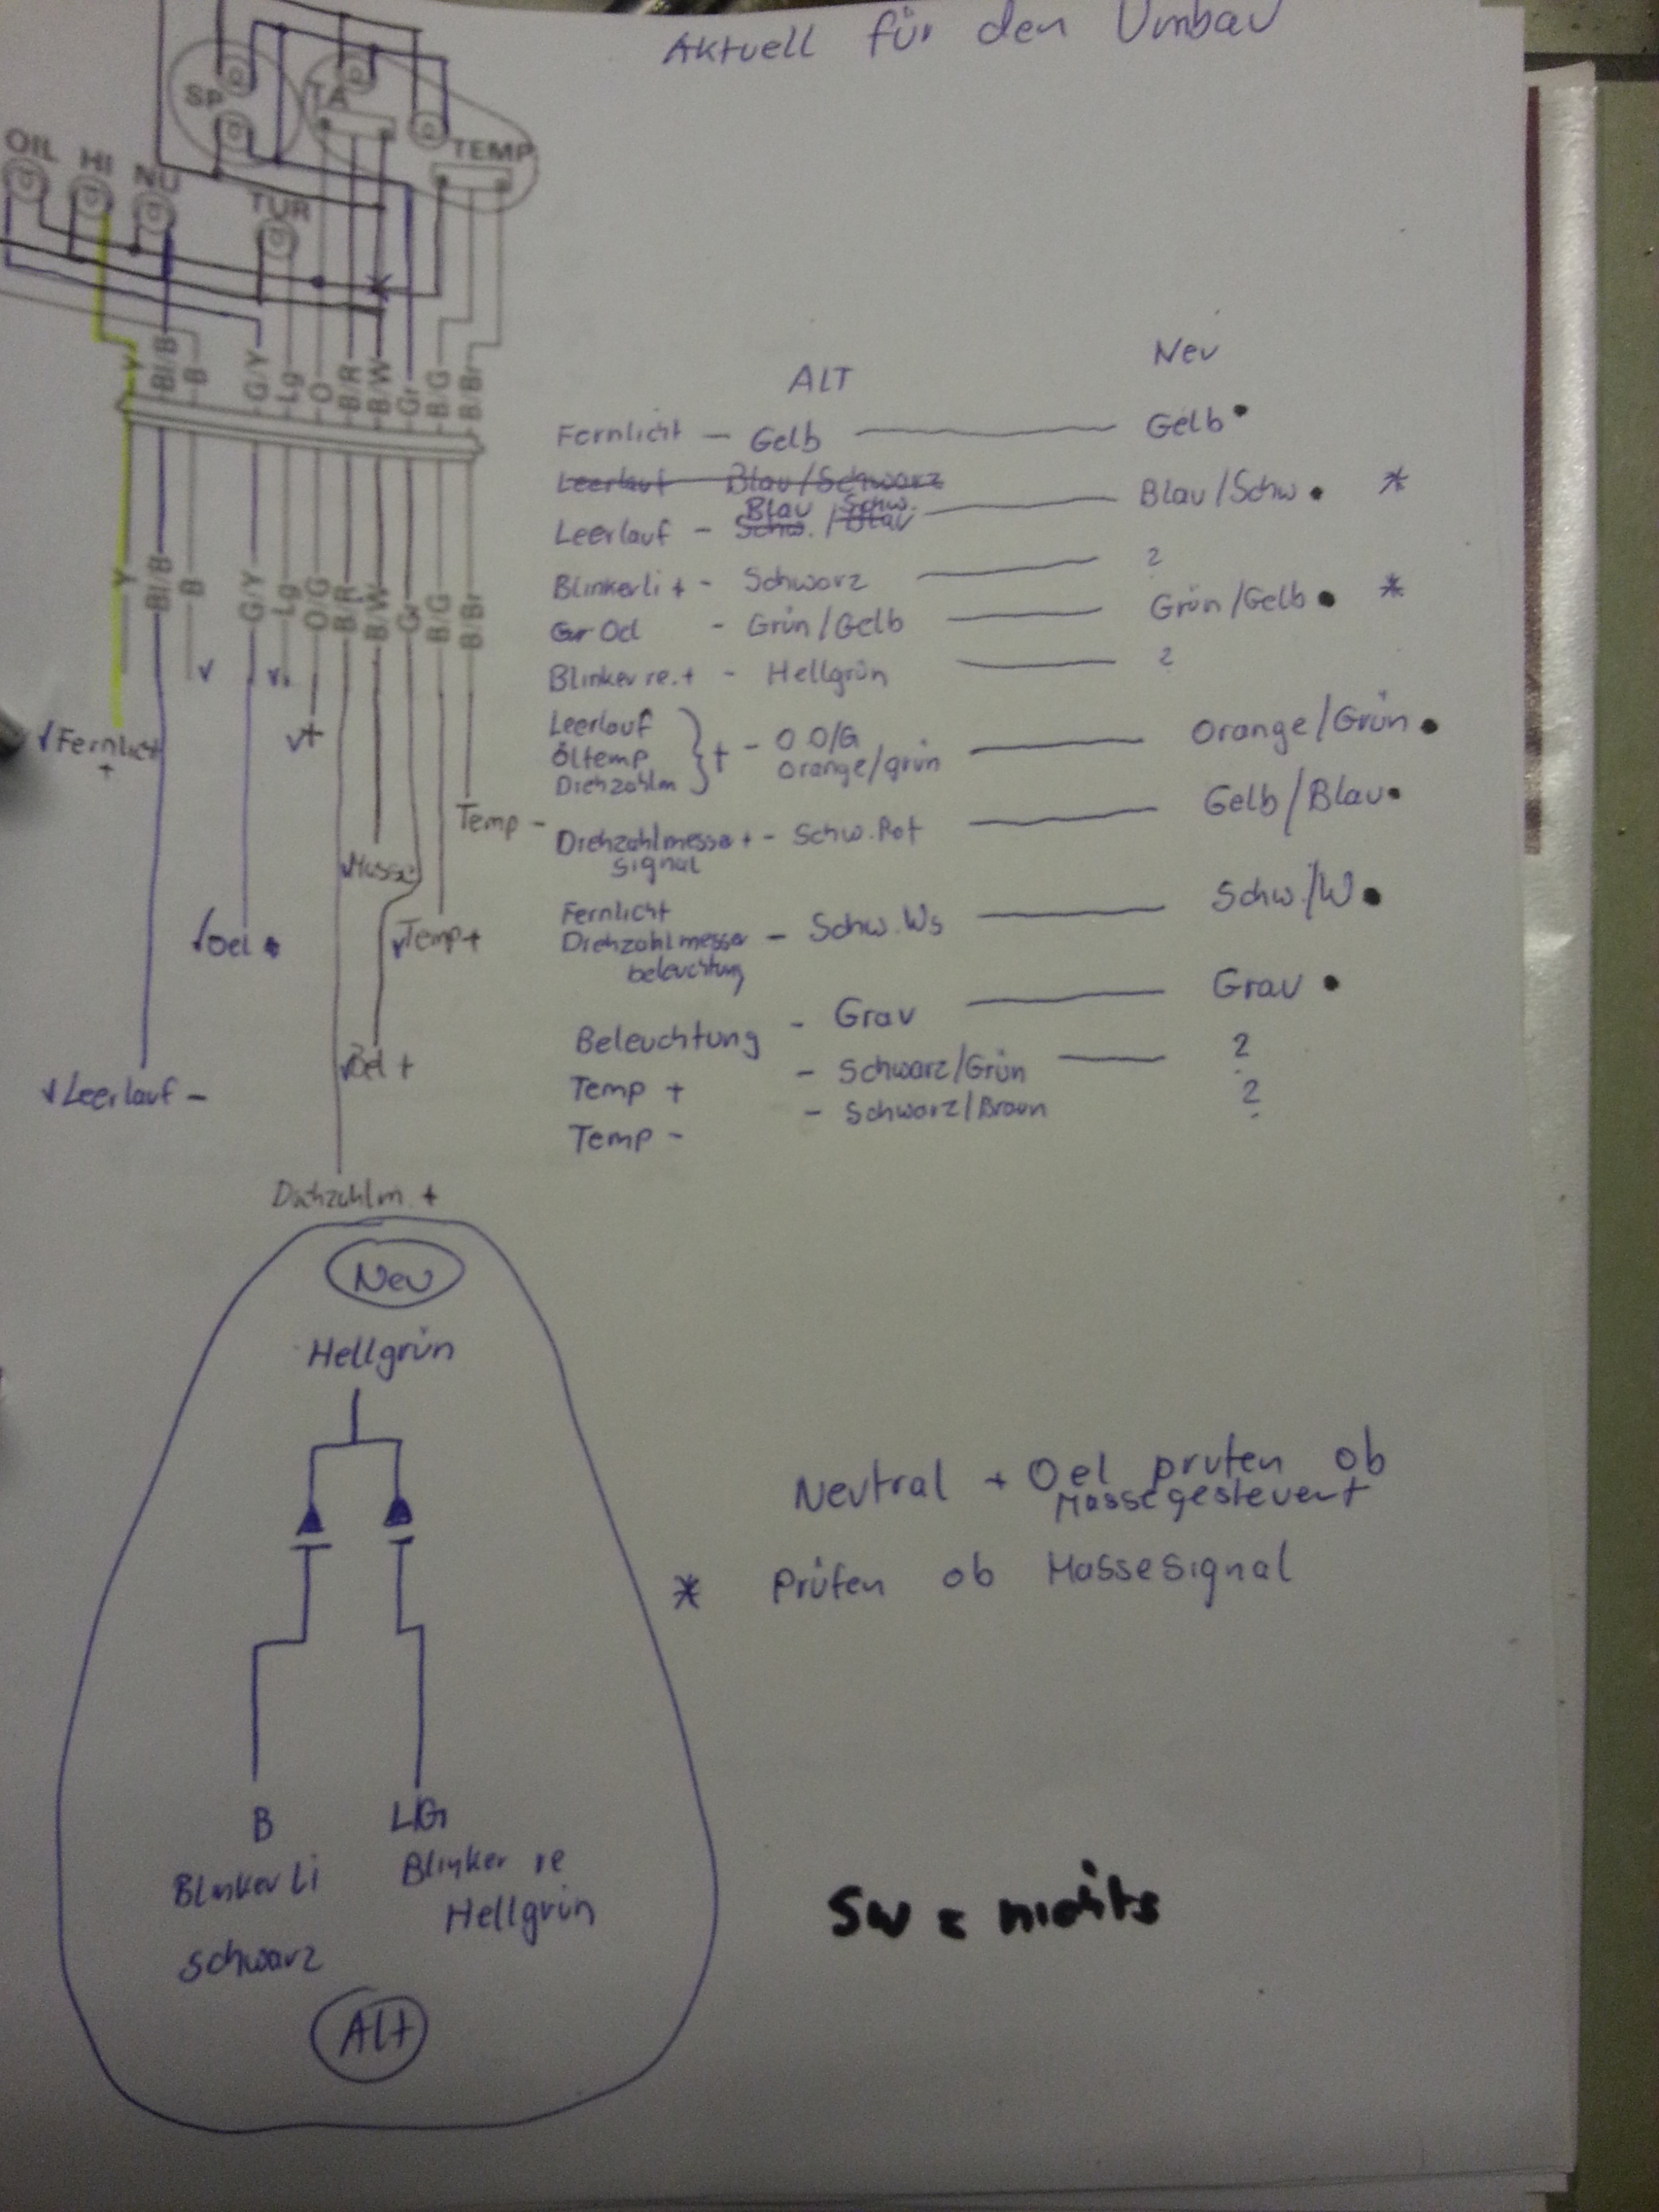 Aktuell für den Umbau
SP TA
TEMP
OIL HI NU
TUR
Y Bl/B B G/Y Lg O B/R B/W Gr B/G B/Br
Y Bl/B B G/Y Lg O/G B/R B/W Gr B/G B/Br
√ √. √+
√ Fernlicht
+
Temp -
√Masse
√Oel +
√Temp +
√Bel +
√ Leerlauf -
Drehzahlm. +
ALT Neu
Fernlicht - Gelb Gelb
Leerlauf Blau/Schwarz
Blau Schw.
Leerlauf - Schw. / Blau Blau/Schw. *
Blinker li + - Schwarz ?
Gr Oel - Grün/Gelb Grün/Gelb *
Blinker re. + - Hellgrün ?
Leerlauf
Öltemp } + - O O/G Orange/Grün
Drehzahlm orange/grün
Drehzahlmesser + - Schw. Rot Gelb/Blau
Signal
Fernlicht
Drehzahlmesser - Schw. Ws Schw./W
beleuchtung
Beleuchtung - Grau Grau
Temp + - Schwarz/Grün ?
Temp - - Schwarz/Braun ?
Neu
Hellgrün
B L/G
Blinker li Blinker re
schwarz Hellgrün
Alt
Neutral + Oel prüfen ob
Massegesteuert
* Prüfen ob Massesignal
SW = nichts